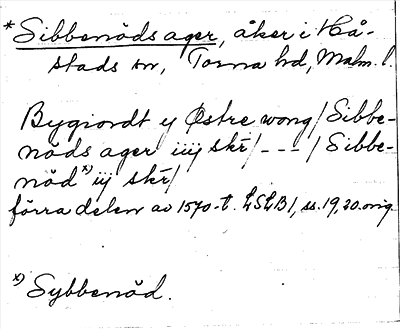 *Sibbenöds ager, åker i Hå-
stads sn, Torna hd, Malm. l.
Bygiordt y Østre wong / Sibbe-
nöds ager iiij skr / - - - / Sibbe-
nöd x) iij skr /
förra delen av 1570-t. LSLB 1, ss. 19, 20. orig.
x) Sybbenöd.